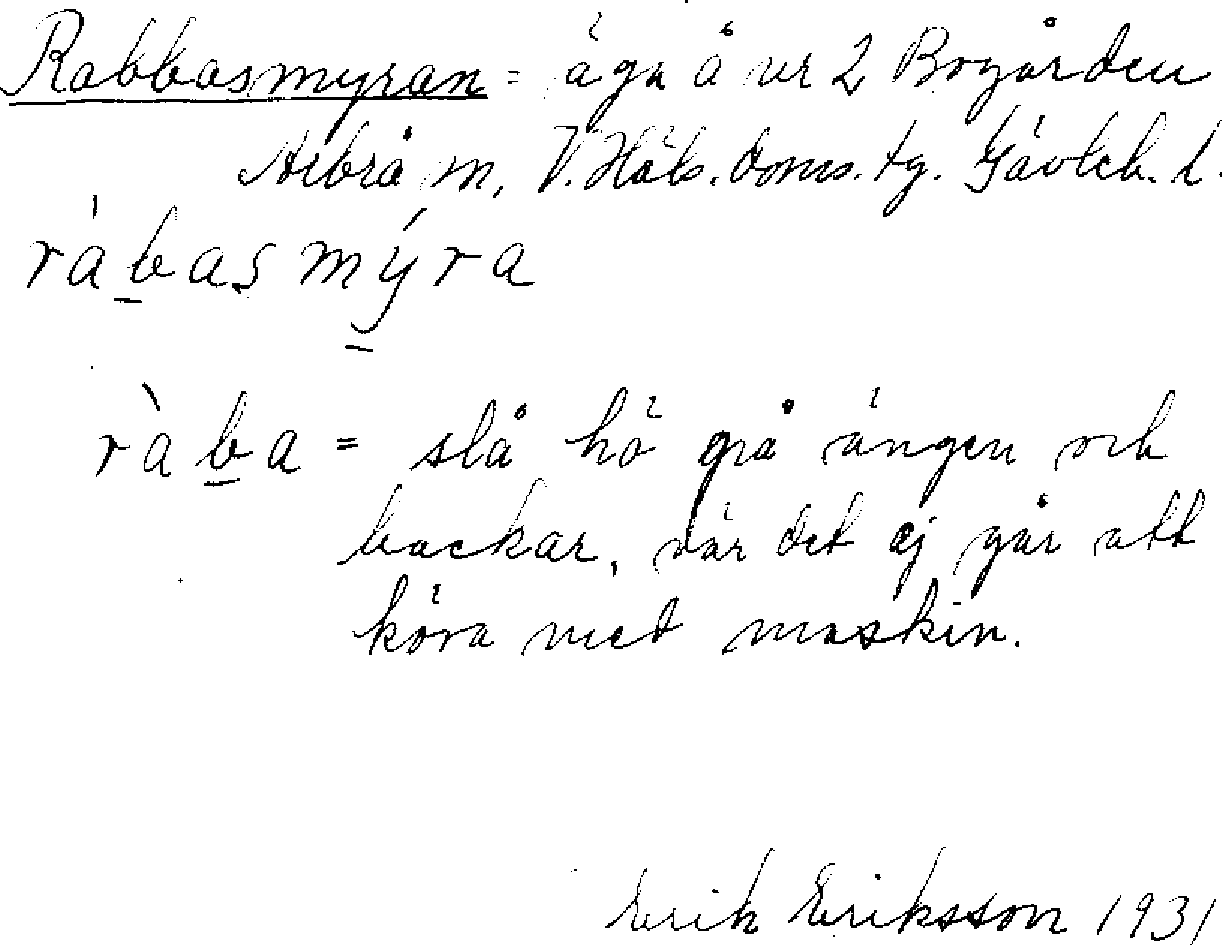 Rabbasmyran = äga å nr 2 Bogården
Arbrå m, V. Häls. doms. tg. Gävleb. l.
ràbasmýra
ràba = slå hö på ängen och
backar, där det ej går att
köra med maskin.
Erik Eriksson 1931